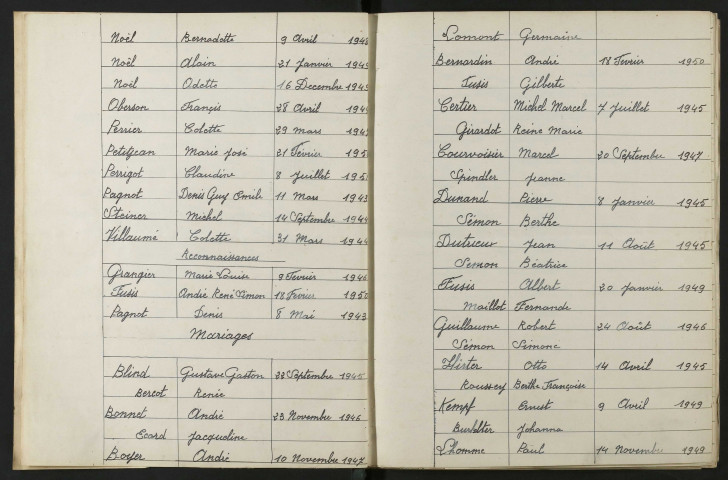 Noël Bernadette 9 Avril 194
Noël Alain 21 Janvier 194
Noël Odette 16 Decembre 194
Oberson François 28 Avril 194
Perrier Colette 29 mars 194
Petitjean Marie José 21 Février 195
Perrigot Claudine 8 Juillet 195
Pagnot Denis Guy Emile 11 Mars 1943
Steiner Michel 14 Septembre 194
Villaumé Colette 31 Mars 194
Reconnaissances
Grangier Marie Louise 9 Fevrier 1946
Fusis André René Simon 18 Fevrier 1950
Pagnot Denis 8 Mai 1943
Mariages
Blind Gustave Gaston 22 Septembre 1945
Bercot Renée
Bonnet André 23 Novembre 1946
Ecard Jacqueline
Boyer André 10 Novembre 1947
Lomont Germaine
Bernardin André 18 Fevrier 1950
Fusis Gilberte
Certier Michel Marcel 7 Juillet 1945
Girardot Reine Marie
Courvoisier Marcel 20 Septembre 1947
Spindler Jeanne
Dunand Pierre 8 Janvier 1945
Simon Berthe
Dutrieux Jean 11 Août 1945
Simon Béatrice
Fusis Albert 20 Janvier 1949
Maillot Fernande
Guillaume Robert 24 Août 1946
Simon Simone
Hister Otto 14 Avril 1945
Roussey Berthe Françoise
Kempf Ernest 9 Avril 1949
Johanna
Lhomme Paul 14 Novembre 1949